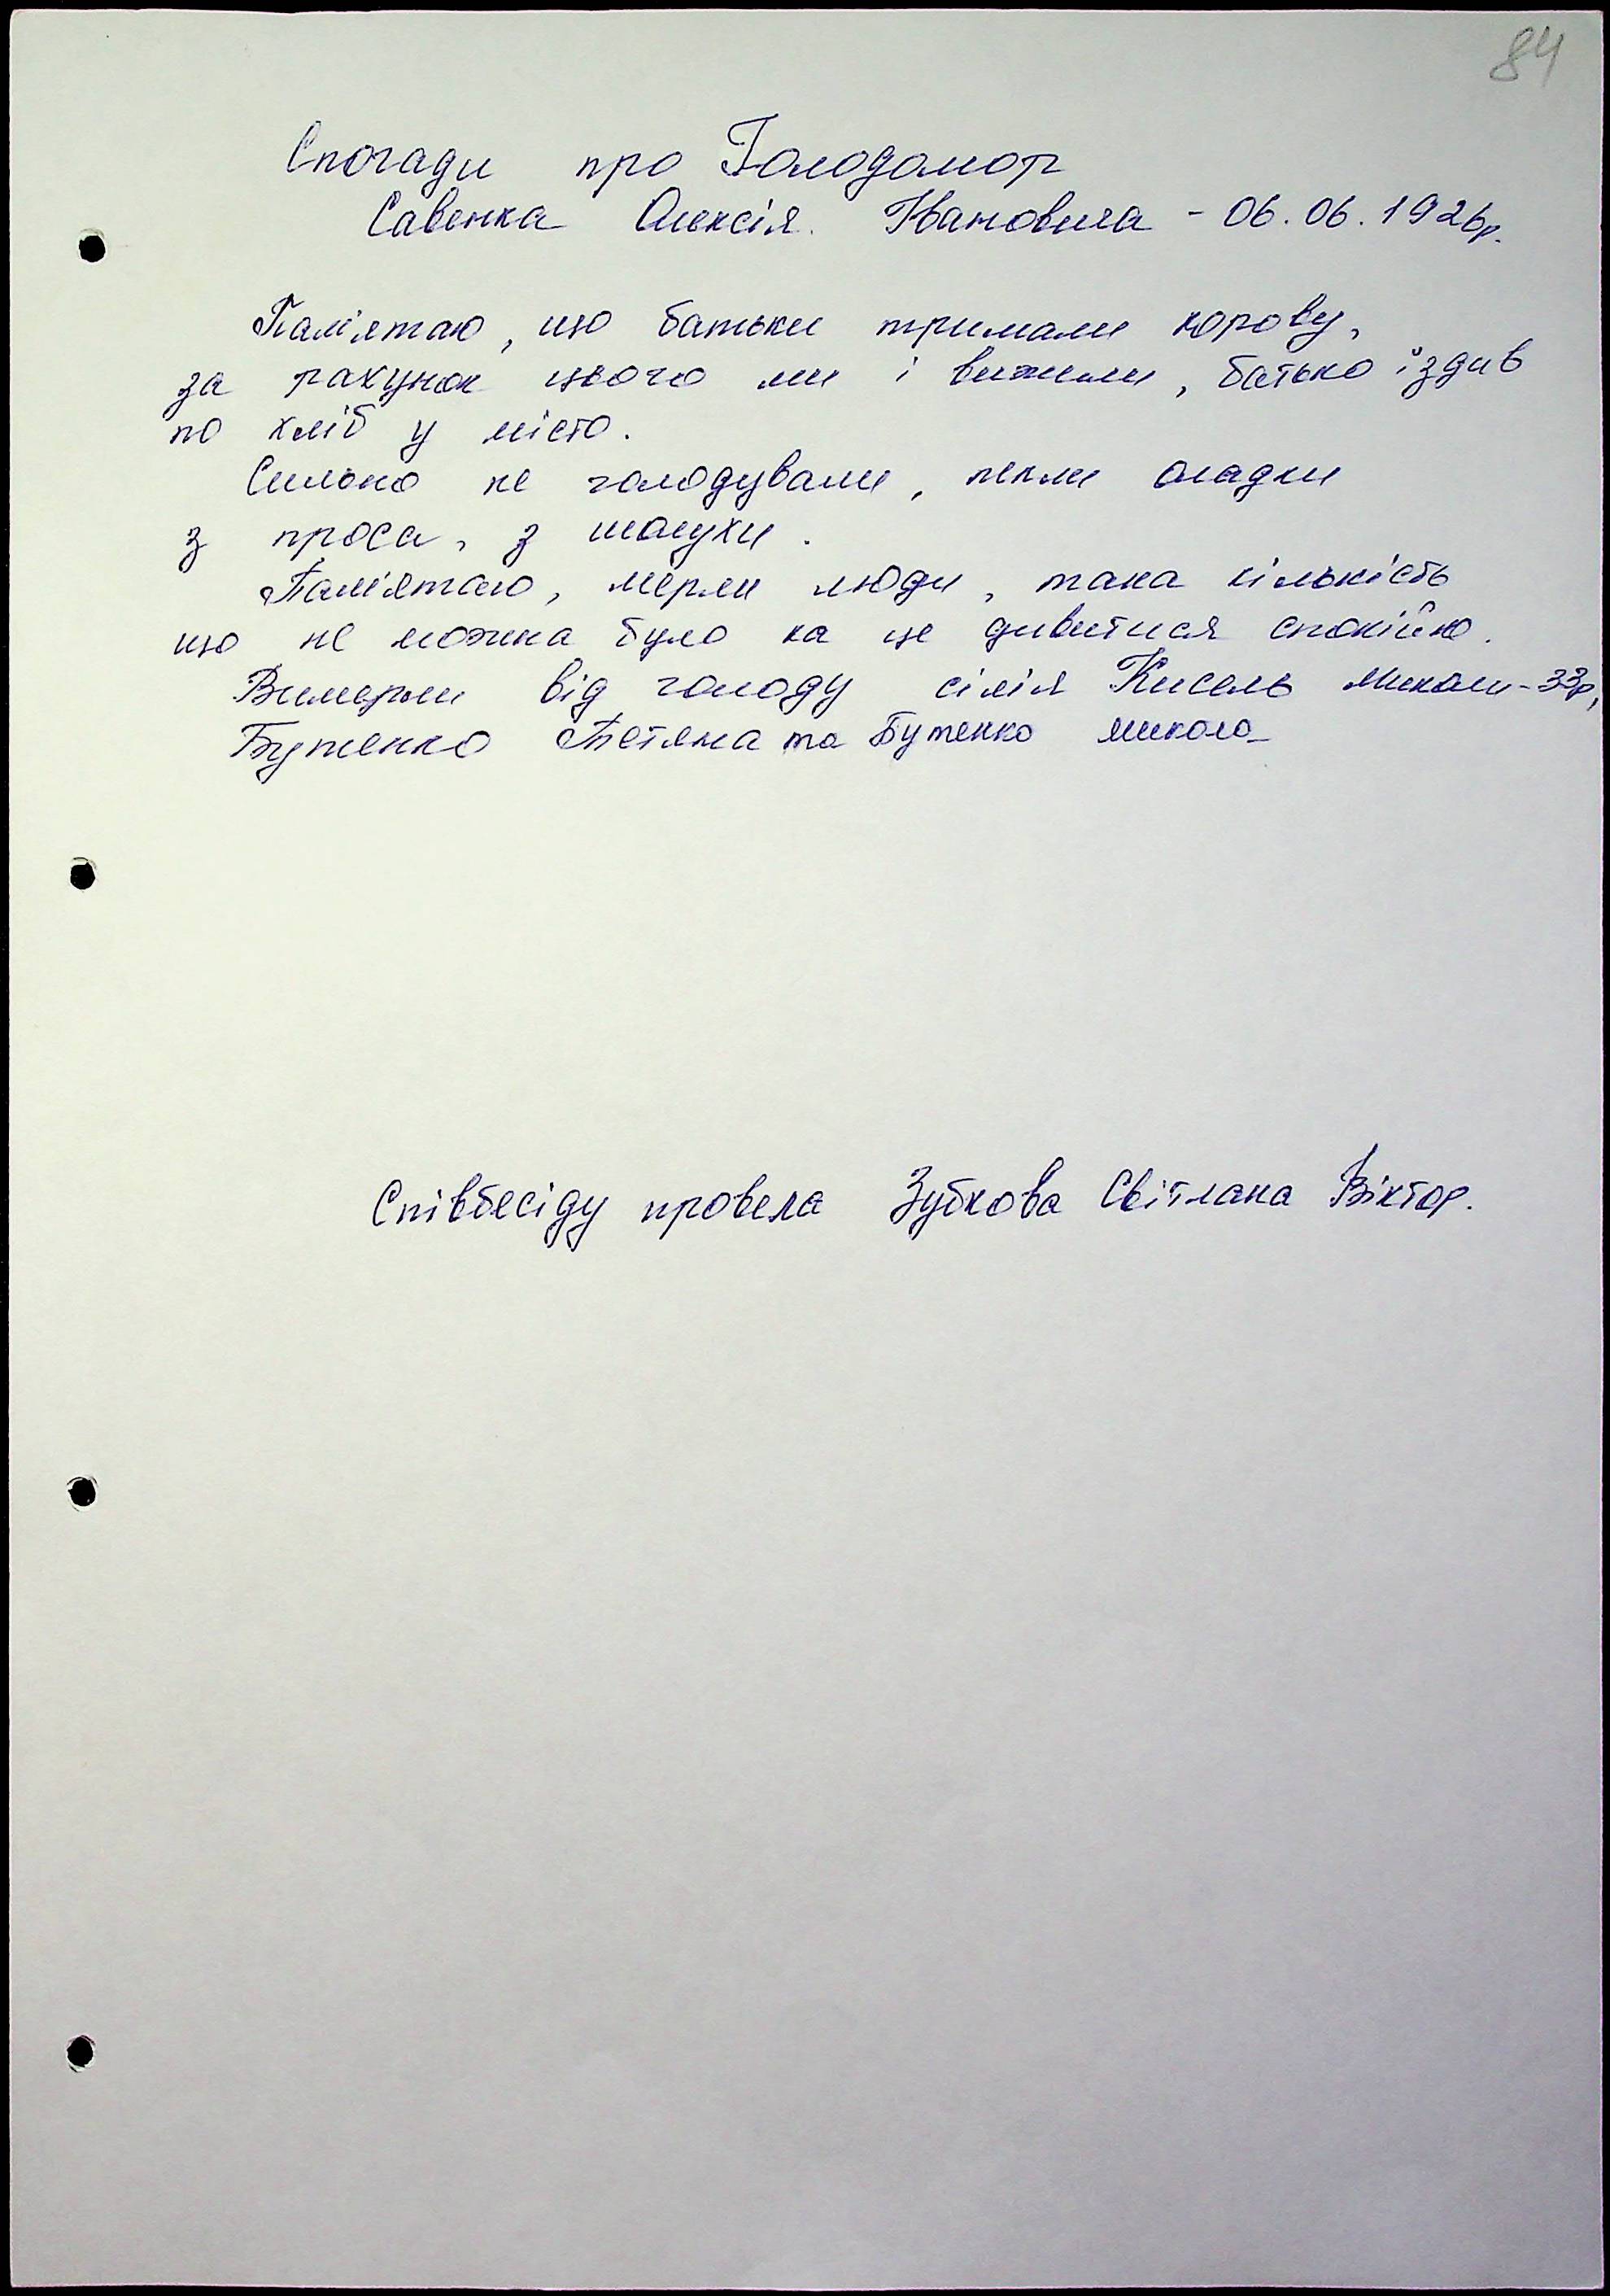 84
Спогади про Голодомор
Савенка Олексія Івановича - 06.06.1926р.
Пам'ятаю, що батьки тримали корову,
за рахунок цього ми і вижили, батько їздив
по хліб у місто.
Сильно не голодували, пекли оладки
з проса, з шолухи.
Пам'ятаю, мерли люди, така кількість
що не можна було на це дивитися спокійно.
Вимерли від голоду сім'я Кисель Миколи - 33р,
Бутенко Тетяна та Бутенко Микола
Співбесіду провела Зубкова Світлана Віктор.